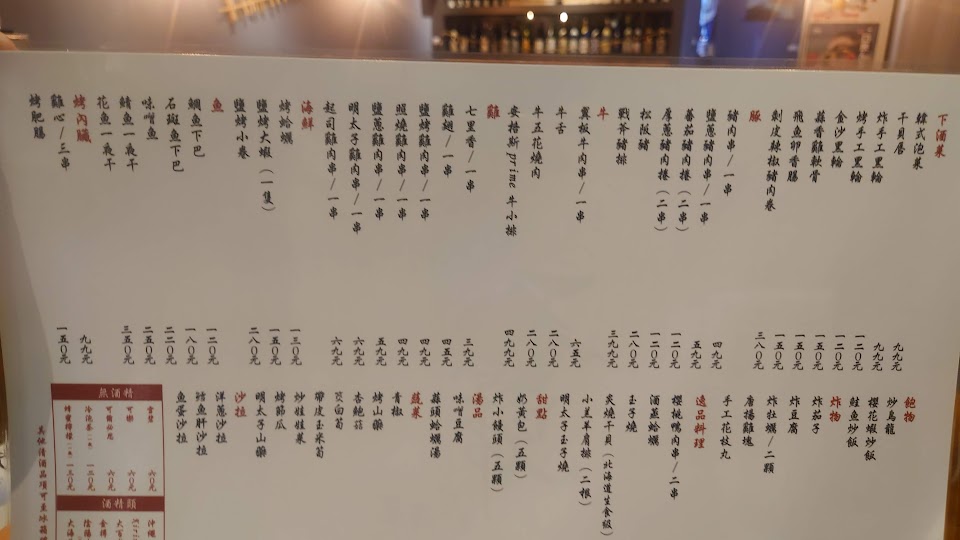 下酒菜
韓式泡菜 九九元
干貝唇 九九元
炸手工黑輪 一二0元
烤手工黑輪 一二0元
金沙黑輪 一五0元
蒜香雞軟骨 一五0元
飛魚卵香腸 一五0元
剝皮辣椒豬肉卷 三八0元
豚
豬肉串/一串 四九元
鹽蔥豬肉串/一串 五九元
蕃茄豬肉捲(二串) 一二0元
厚蔥豬肉捲(二串) 一二0元
松阪豬 二八0元
戰斧豬排 三九九元
牛
翼板牛肉串/一串 六五元
牛舌 二八0元
牛五花燒肉 二八0元
安格斯prime牛小排 四九九元
雞
七里香/一串 三九元
雞翅/一串 四五元
鹽烤雞肉串/一串 四九元
照燒雞肉串/一串 四九元
鹽蔥雞肉串/一串 五九元
明太子雞肉串/一串 六九元
起司雞肉串/一串 六九元
海鮮
烤蛤蠣 一三0元
鹽烤大蝦(一隻)
鹽烤小卷 二八0元
魚
鯛魚下巴 一二0元
石斑魚下巴 一八0元
味噌魚 二二0元
鯖魚一夜干 二五0元
花魚一夜干 三五0元
烤內臟
雞心/三串 九九元
烤肥腸 一五0元
飽物
炒烏龍
櫻花蝦炒飯
鮭魚炒飯
炸物
炸茄子
炸豆腐
炸牡蠣/二顆
唐揚雞塊
手工花枝丸
逸品料理
櫻桃鴨肉串/二串
酒蒸蛤蠣
玉子燒
炙燒干貝(北海道生食級)
小羔羊肩排(二根)
明太子玉子燒
甜點
奶黃包(五顆)
炸小饅頭(五顆)
湯品
味噌豆腐
蒜頭蛤蠣湯
蔬菜
青椒
烤山藥
杏鮑菇
茭白筍
帶皮玉米筍
炒娃娃菜
烤節瓜
明太子山藥
沙拉
洋蔥沙拉
鱈魚肝沙拉
魚蛋沙拉
無酒精
雪碧 六0元
可樂 六0元
酒精類